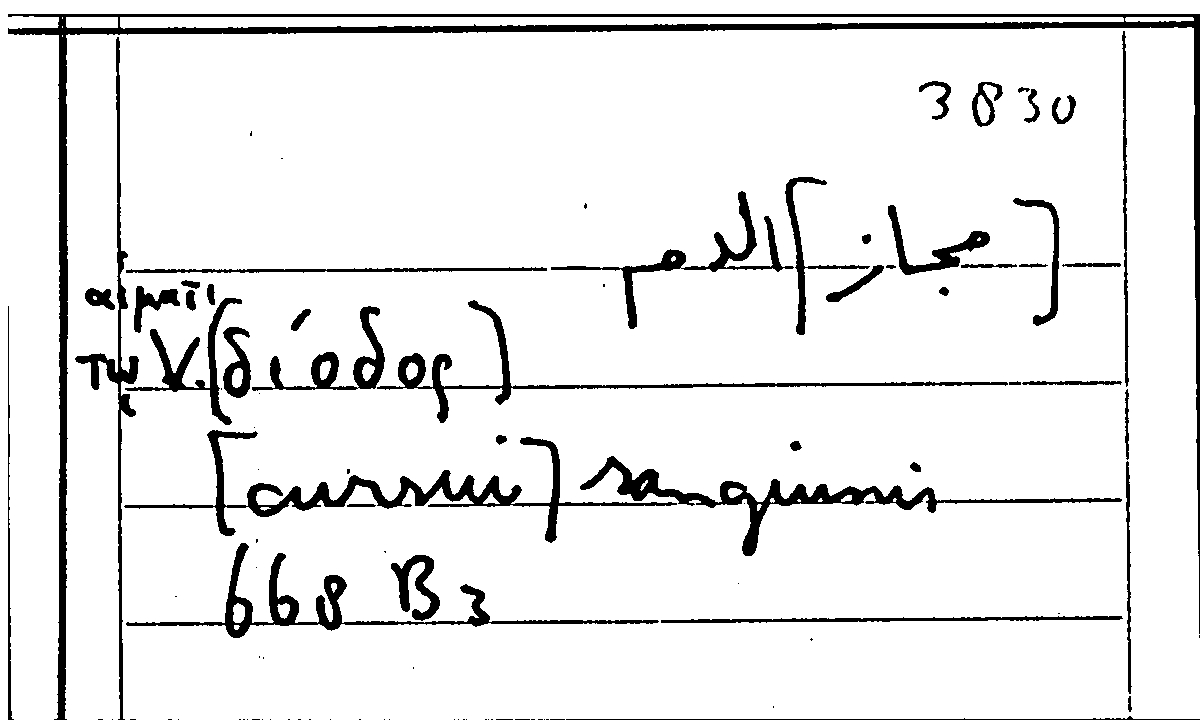 3830
[مجاز] الدم
αἵματι
τῷ V. (δίοδος)
[cursui] sanguinis
668 B 3